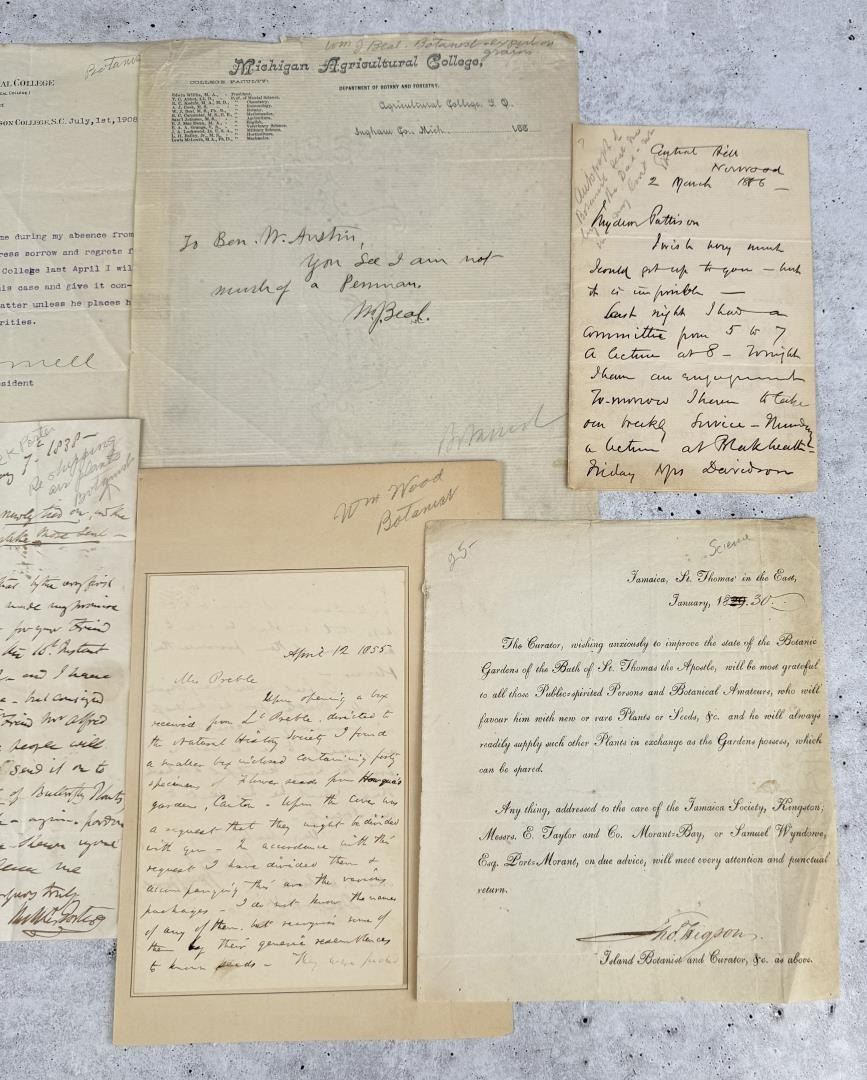 Botanist
AL COLLEGE
SON COLLEGE, S.C. July, 1st, 1908
me during my absence from
ress sorrow and regrets f
College last April I wil
his case and give it con-
atter unless he places h
rities.
nell
esident
Wm J Beal. Botanist expert on
grains
Michigan Agricultural College,
COLLEGE FACULTY.
DEPARTMENT OF BOTANY AND FORESTRY.
Agricultural College, P. O.
Ingham Co., Mich.
188
To Ben. W. Austin,
You see I am not
much of a Penman.
W.J. Beal.
Botanist
Central Hill
Norwood
2 March 1886
My dear Pattison
I wish very much
I could get up to you – but
it is impossible –
Last night I had a
Committee from 5 to 7
A lecture at 8 – Tonight
I have an engagement
To-morrow I have to take
our weekly Service –
a lecture at Blackheath –
Friday Mrs Davidson
Porter
7 - 1838 -
Re shipping
air plants
Botanist
newly tied on, and he
that by the very first
made my promise
- for your Friend
the 10th Instant
- and I have
Friend Mr Alfred
people will
send it on to
of Butterfly Plants
me
yours truly
Porter
Wm Wood
Botanist
April 12 1855
Mrs Preble
Upon opening a box
received from Lt Preble, directed to
the Natural History Society I found
a smaller box inclosed containing forty
specimens of Flower seeds from Howqua's
garden, Canton - Upon the cover was
a request that they might be divided
with you - In accordance with this
request I have divided them &
accompanying this are the various
packages - I do not know the names
of any of them, but recognise some of
them by their generic resemblances
to known seeds - They were packed
25-
Science
Jamaica, St. Thomas' in the East,
January, 1829. 30
The Curator, wishing anxiously to improve the state of the Botanic
Gardens of the Bath of St. Thomas the Apostle, will be most grateful
to all those Public-spirited Persons and Botanical Amateurs, who will
favour him with new or rare Plants or Seeds, &c. and he will always
readily supply such other Plants in exchange as the Gardens possess, which
can be spared.
Any thing, addressed to the care of the Jamaica Society, Kingston;
Messrs. E. Taylor and Co. Morant-Bay, or Samuel Wyndowe,
Esq. Port-Morant, on due advice, will meet every attention and punctual
return.
Tho. Higson.
Island Botanist and Curator, &c. as above.